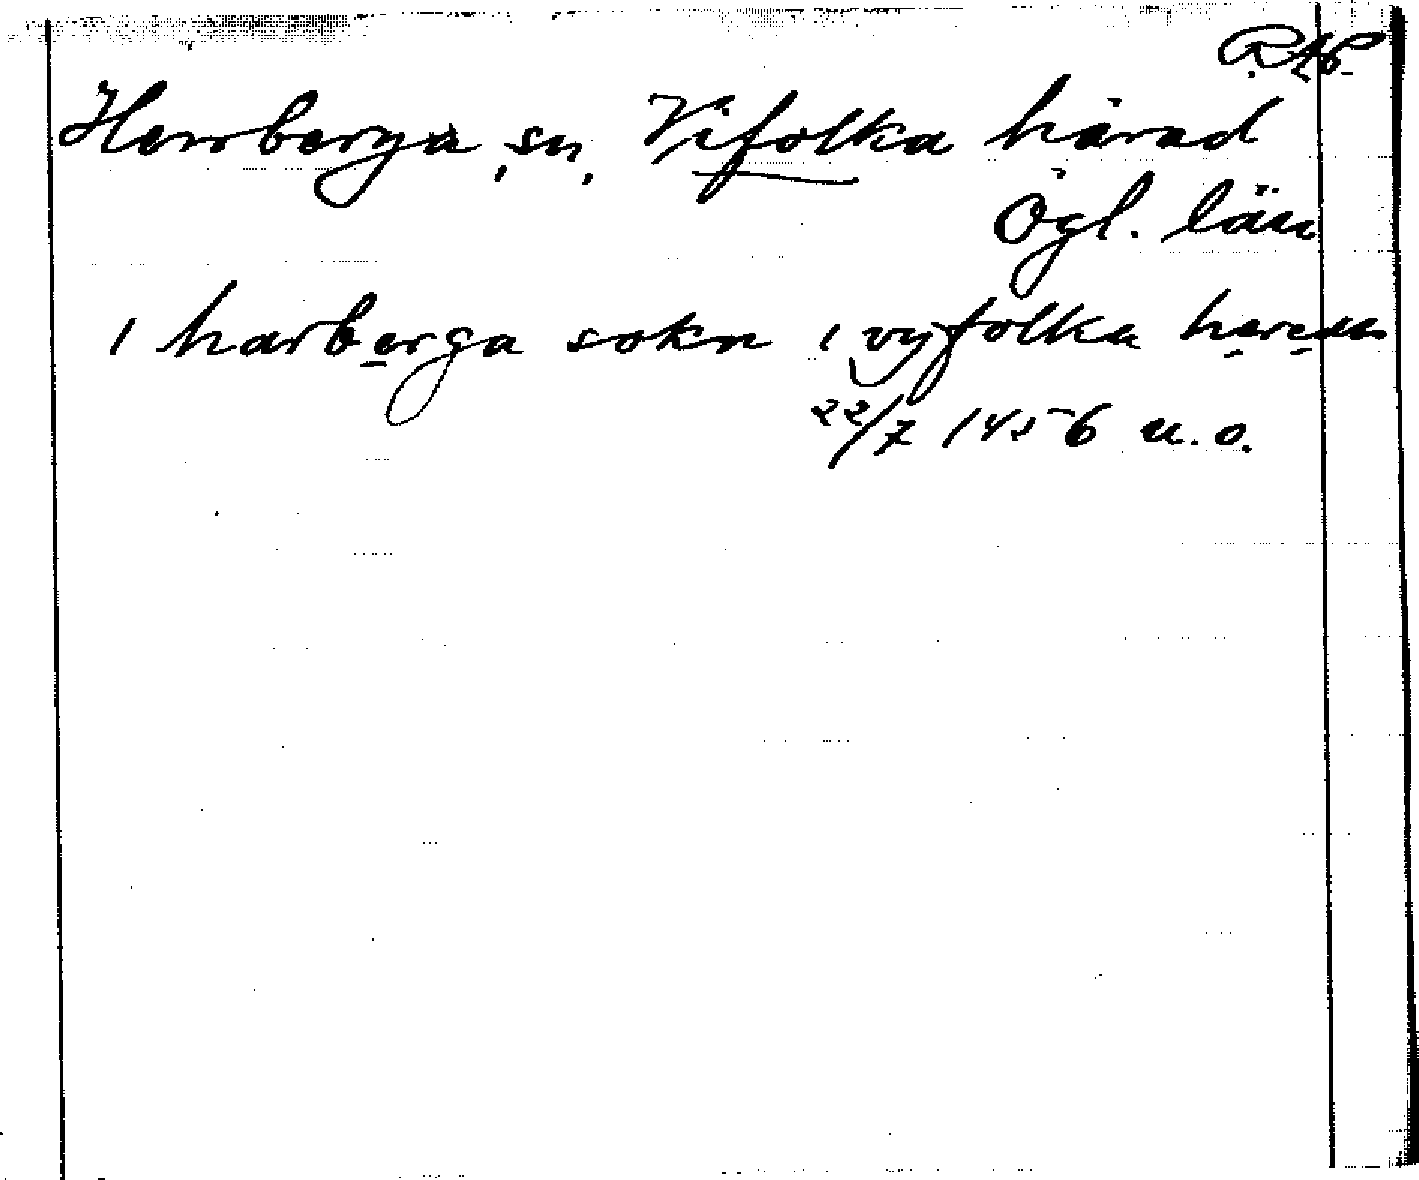 RAP
Herrberga sn, Vifolka härad
Ögl. län
i harberga sokn i vyfolka
22/7 1456 u. o.